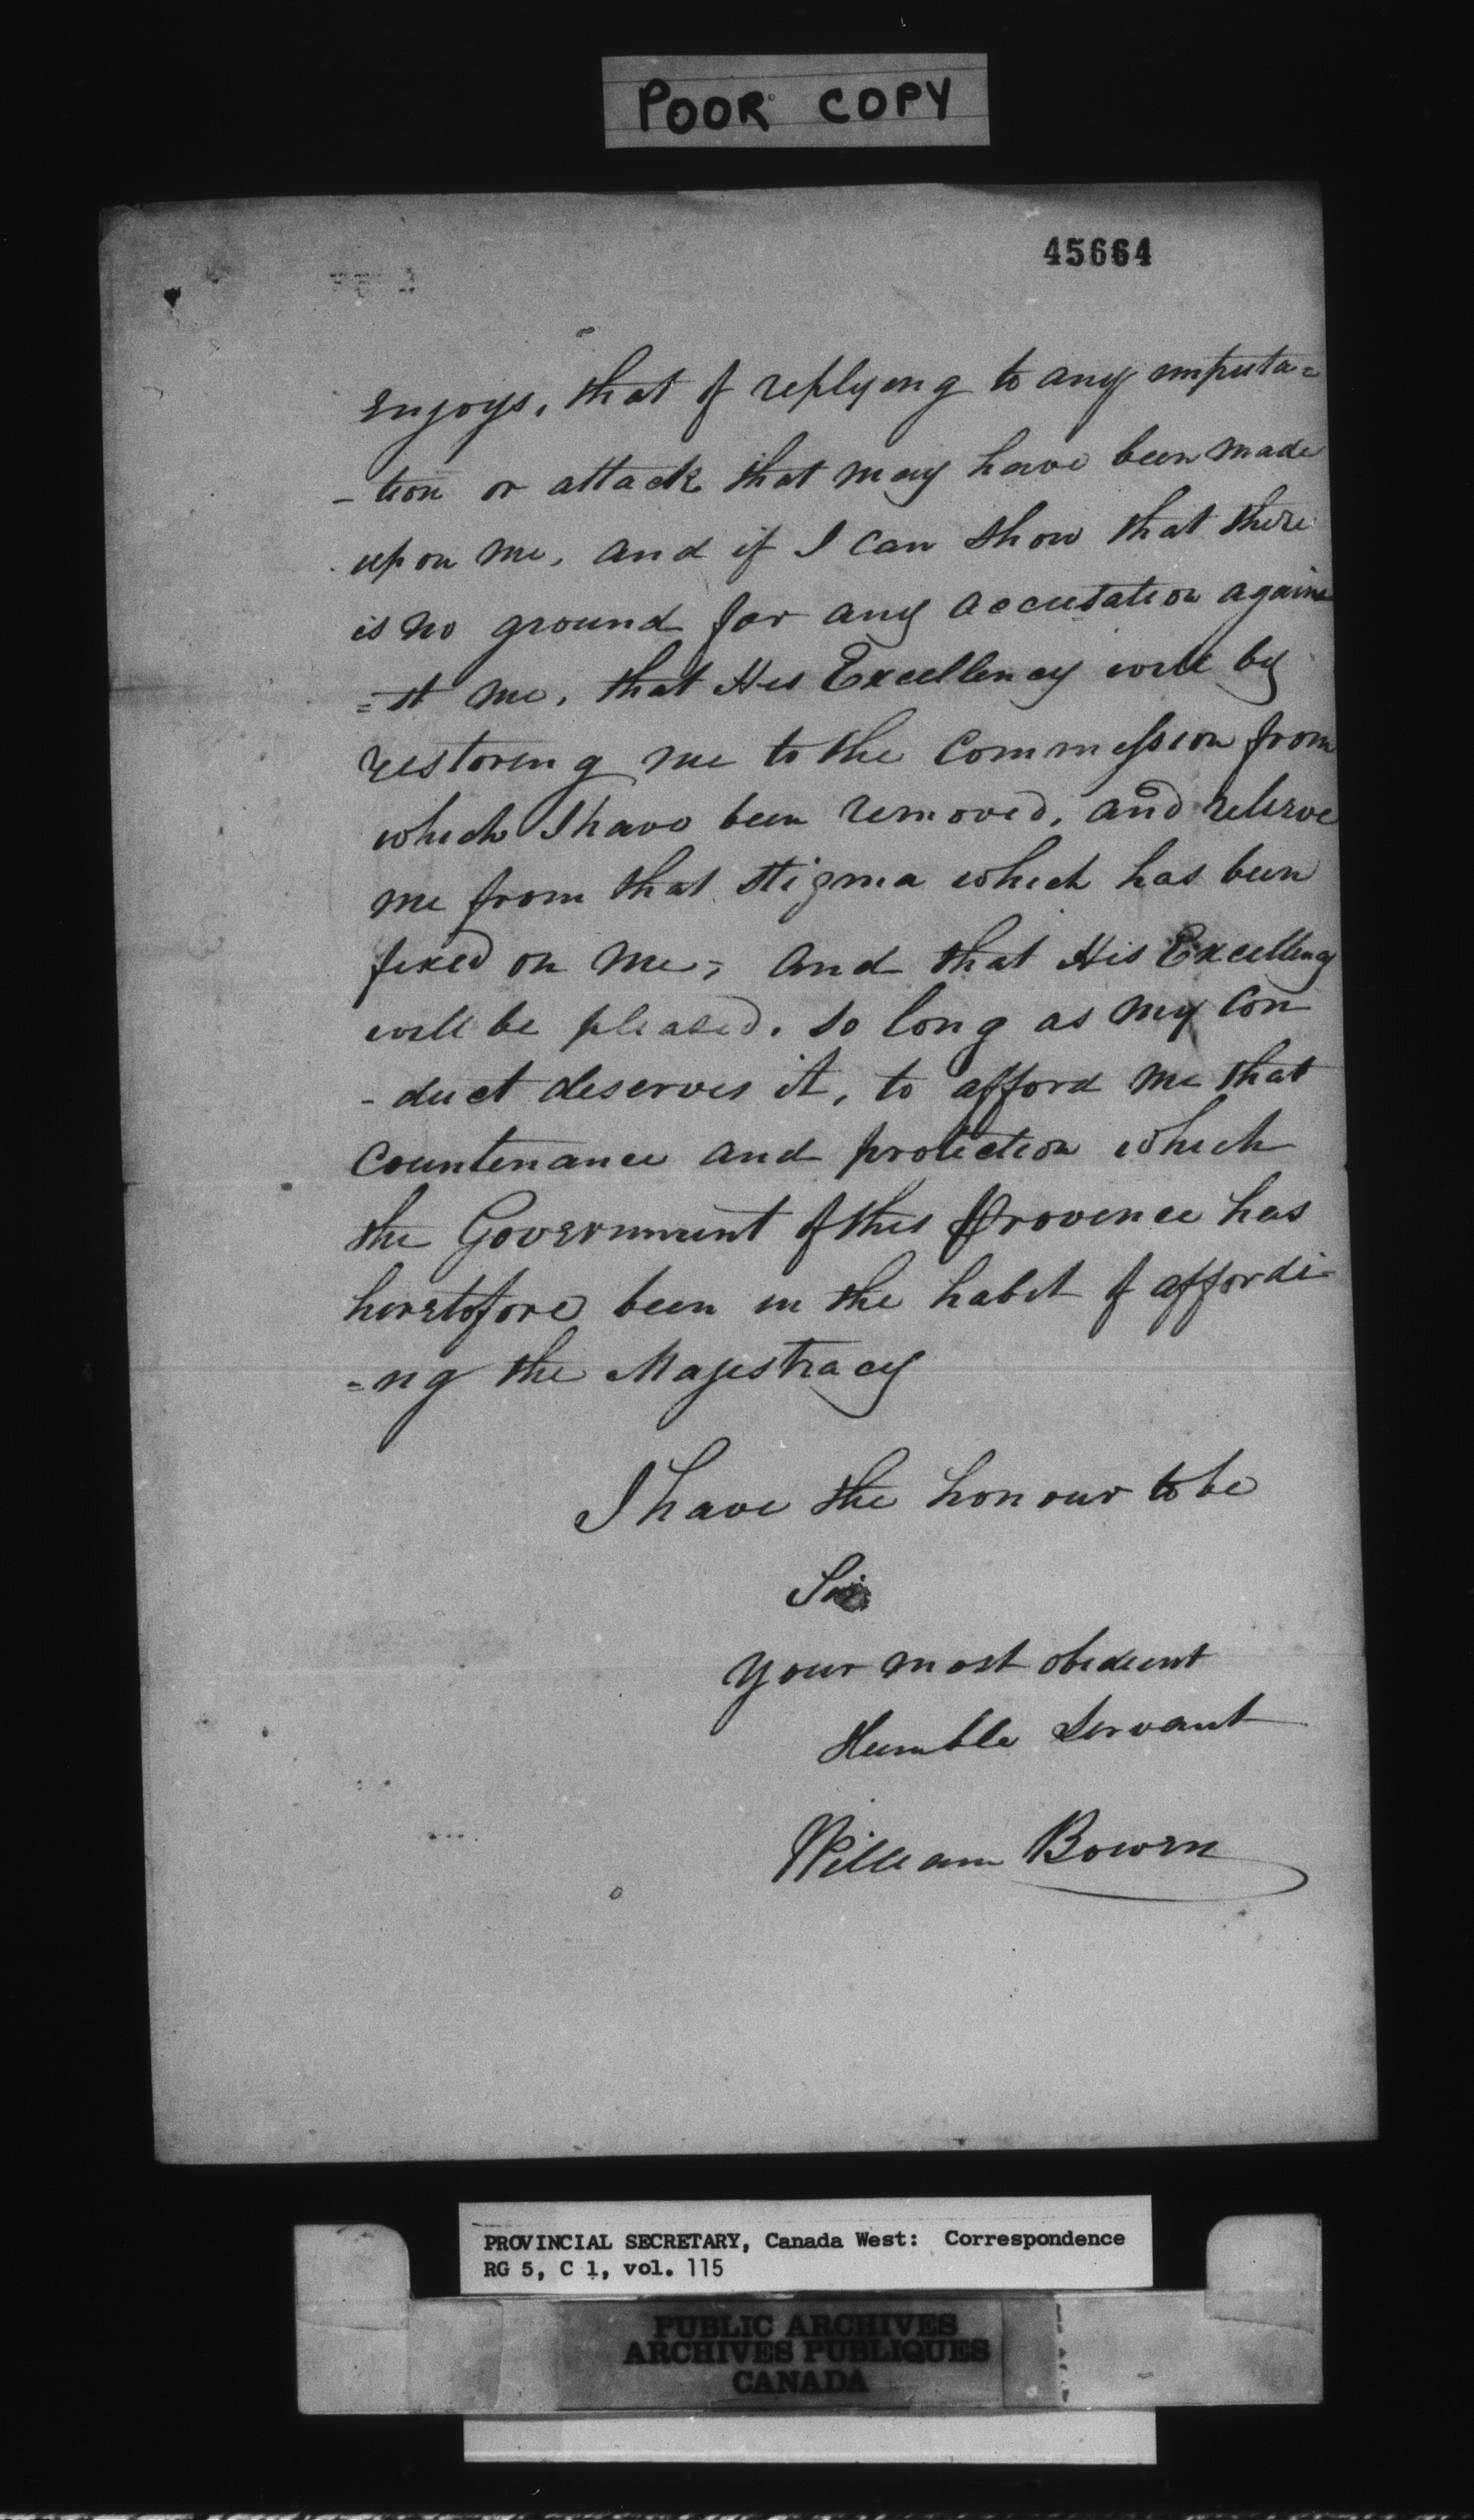 POOR COPY
45664
enjoys, that of replying to any imputa=
-tion or attack that may have been made
upon me, and if I can show that there
is no ground for any accusation again
=st me, that His Excellency will by
restoring me to the Commission from
which I have been removed, and relieve
me from that stigma which has been
fixed on me; and that His Excellency
will be pleased, so long as my con
-duct deserves it, to afford me that
Countenance and protection which
the Government of this Province has
heretofore been in the habit of affordi
=ng the Majestracy
I have the honour to be
Sir
Your most obedient
Humble Servant
William Bowen
PROVINCIAL SECRETARY, Canada West: Correspondence
RG 5, C 1, vol. 115
PUBLIC ARCHIVES
ARCHIVES PUBLIQUES
CANADA